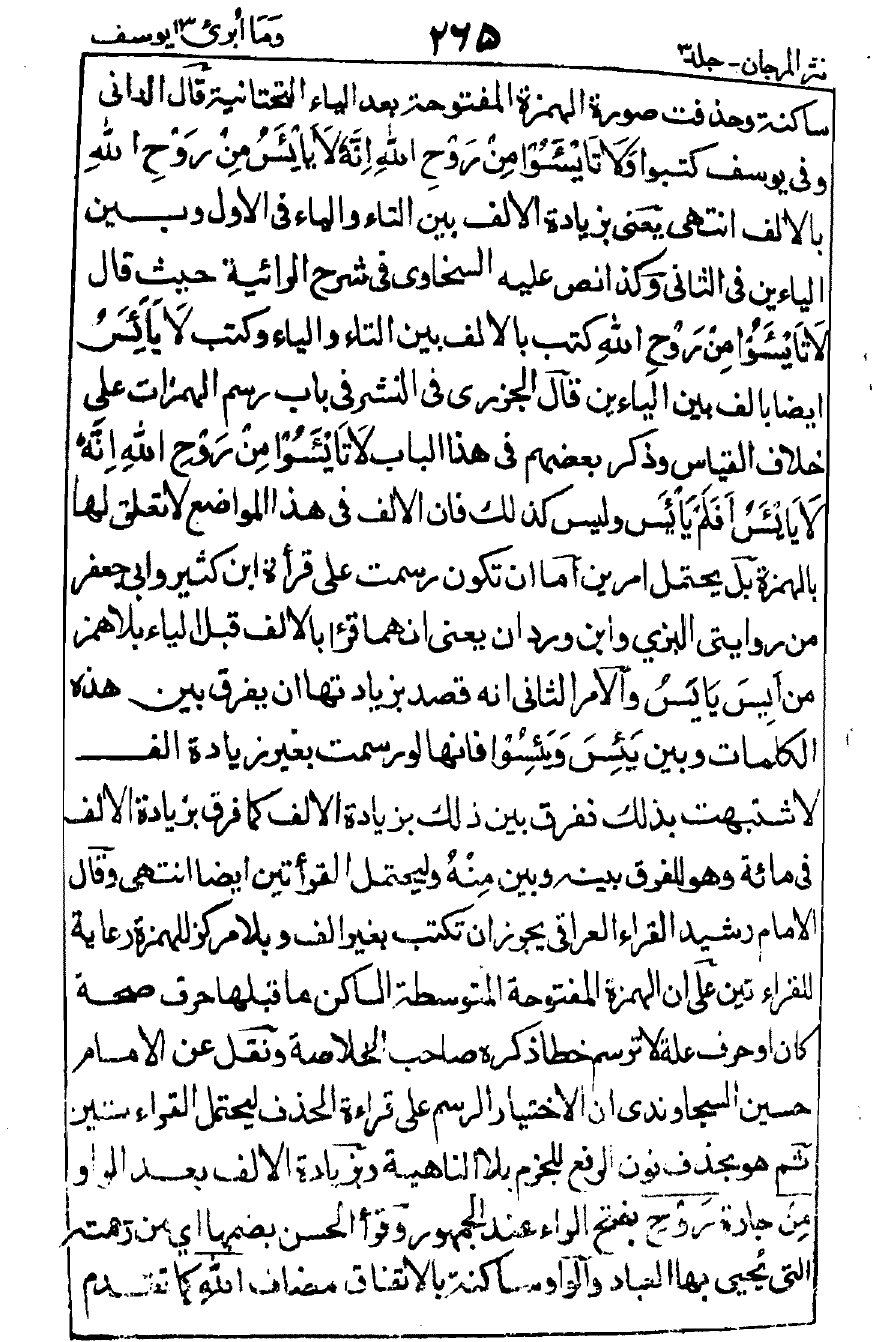 نثر المرجان - جلد ٣
٢٦٥
وَمَا أُبرئ ١٣ يوسف
ساكنة وحذفت صورة الهمزة المفتوحة بعد الياء التحتانية قال الدانى
وفى يوسف كتبوا وَلَا تَايْئَسُوْا مِنْ رَوْحِ اللهِ اِنَّهٗ لَا يَايْئَسُ مِنْ رَوْحِ اللهِ
بالالف انتهى يعنى بزيادة الالف بين التاء والياء فى الاول وبين
الياءين فى الثانى وكذا نص عليه السخاوى فى شرح الرائية حيث قال
لَا تَايْئَسُوْا مِنْ رَوْحِ اللهِ كتب بالالف بين التاء والياء وكتب لَا يَايْئَسُ
ايضا بالف بين الياءين قال الجزرى فى النشر فى باب رسم الهمزات على
خلاف القياس وذكر بعضهم فى هذا الباب لَا تَايْئَسُوْا مِنْ رَوْحِ اللهِ اِنَّهٗ
لَا يَايْئَسُ اَفَلَمْ يَايْئَسِ وليس كذلك فان الالف فى هذا المواضع لا تعلق لها
بالهمزة بل يحتمل امرين اما ان تكون رسمت على قرأة ابن كثير وابى جعفر
من روايتى البزي وابن وردان يعنى انهما قرٔا بالالف قبل الياء بلا همز
من اَيِسَ يَايَسُ والامر الثانى انه قصد بزيادتها ان يفرق بين هذه
الكلمات وبين يَئِسَ وَيَئِسُوْا فانها لو رسمت بغير زيادة الف
لاشتبهت بذلك نفرق بين ذلك بزيادة الالف كما فرق بزيادة الالف
فى مائة وهو للفرق بينه وبين مِنْهُ وليحتمل القرأتين ايضا انتهى وقال
الامام رشيد القراء العراقى يجوز ان تكتب بغير الف وبلا مركز للهمزة رعاية
للقراءتين على ان الهمزة المفتوحة المتوسطة الساكن ما قبلها حرف صحة
كان او حرف علة لا ترسم خطا ذكره صاحب الخلاصة ونقل عن الامام
حسين السجاوندى ان الاختيار الرسم على قراءة الحذف ليحتمل القراءتين
ثم هو بحذف نون الرفع للجزم بلا الناهية وبزيادة الالف بعد الواو
مِنْ جارة رَوْحِ بفتح الراء عند الجمهور وقرأ الحسن بضمها اي من رحمته
التى يُحيى بها العباد والواو ساكنة بالاتفاق مضاف اللهِ كما تقدم